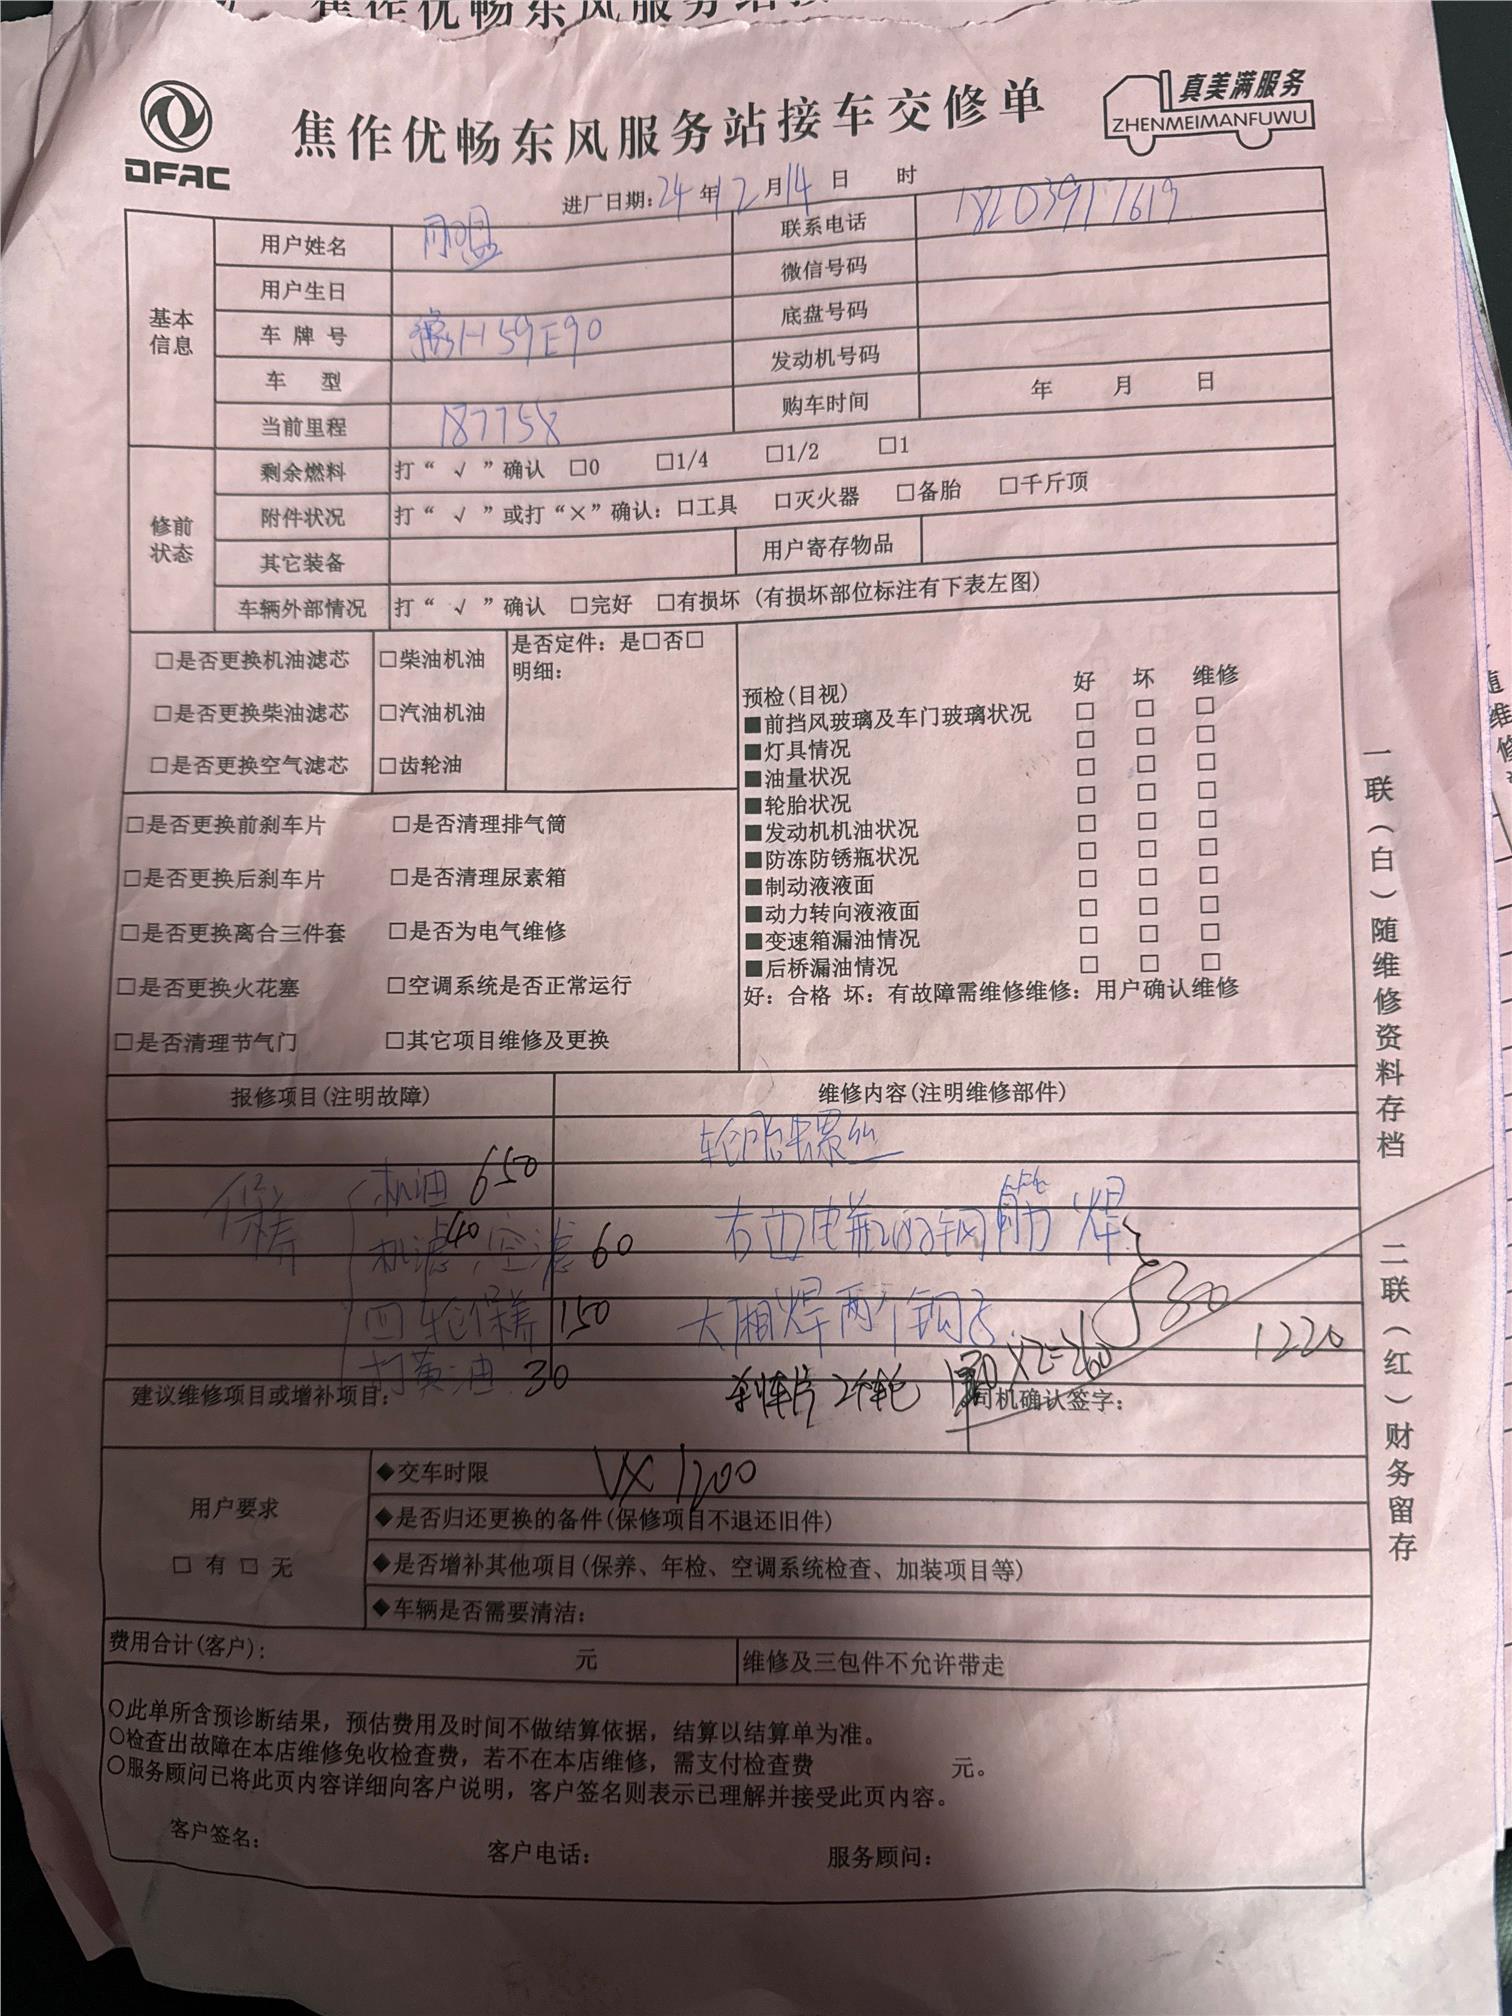 焦作优畅东风服务站接
DFAC
焦作优畅东风服务站接车交修单
真美满服务
ZHENMEIMANFUWU
进厂日期：24年12月14日 时
基本信息
用户姓名 联系电话 18203917619
用户生日 微信号码
车牌号 豫H59E90 底盘号码
车型 发动机号码
当前里程 187758 购车时间 年 月 日
修前状态
剩余燃料 打“√”确认 □0 □1/4 □1/2 □1
附件状况 打“√”或打“×”确认：□工具 □灭火器 □备胎 □千斤顶
其它装备 用户寄存物品
车辆外部情况 打“√”确认 □完好 □有损坏 (有损坏部位标注有下表左图)
□是否更换机油滤芯 □柴油机油
□是否更换柴油滤芯 □汽油机油
□是否更换空气滤芯 □齿轮油
是否定件：是□否□
明细：
□是否更换前刹车片 □是否清理排气筒
□是否更换后刹车片 □是否清理尿素箱
□是否更换离合三件套 □是否为电气维修
□是否更换火花塞 □空调系统是否正常运行
□是否清理节气门 □其它项目维修及更换
预检(目视) 好 坏 维修
■前挡风玻璃及车门玻璃状况 □ □ □
■灯具情况 □ □ □
■油量状况 □ □ □
■轮胎状况 □ □ □
■发动机机油状况 □ □ □
■防冻防锈瓶状况 □ □ □
■制动液液面 □ □ □
■动力转向液液面 □ □ □
■变速箱漏油情况 □ □ □
■后桥漏油情况 □ □ □
好：合格 坏：有故障需维修维修：用户确认维修
报修项目(注明故障) 维修内容(注明维修部件)
轮胎螺丝
保养 机油 650
机滤40 空滤60
四轮保养 150
打黄油 30
右边电瓶 钢筋 焊
大厢焊两个钩子
30
1220
刹车片 2个轮 130×2=260
建议维修项目或增补项目： 司机确认签字：
用户要求
□ 有 □ 无
◆交车时限 VX 1200
◆是否归还更换的备件(保修项目不退还旧件)
◆是否增补其他项目(保养、年检、空调系统检查、加装项目等)
◆车辆是否需要清洁：
费用合计(客户)： 元 维修及三包件不允许带走
○此单所含预诊断结果，预估费用及时间不做结算依据，结算以结算单为准。
○检查出故障在本店维修免收检查费，若不在本店维修，需支付检查费 元。
○服务顾问已将此页内容详细向客户说明，客户签名则表示已理解并接受此页内容。
客户签名： 客户电话： 服务顾问：
一联(白)随维修资料存档 二联(红)财务留存